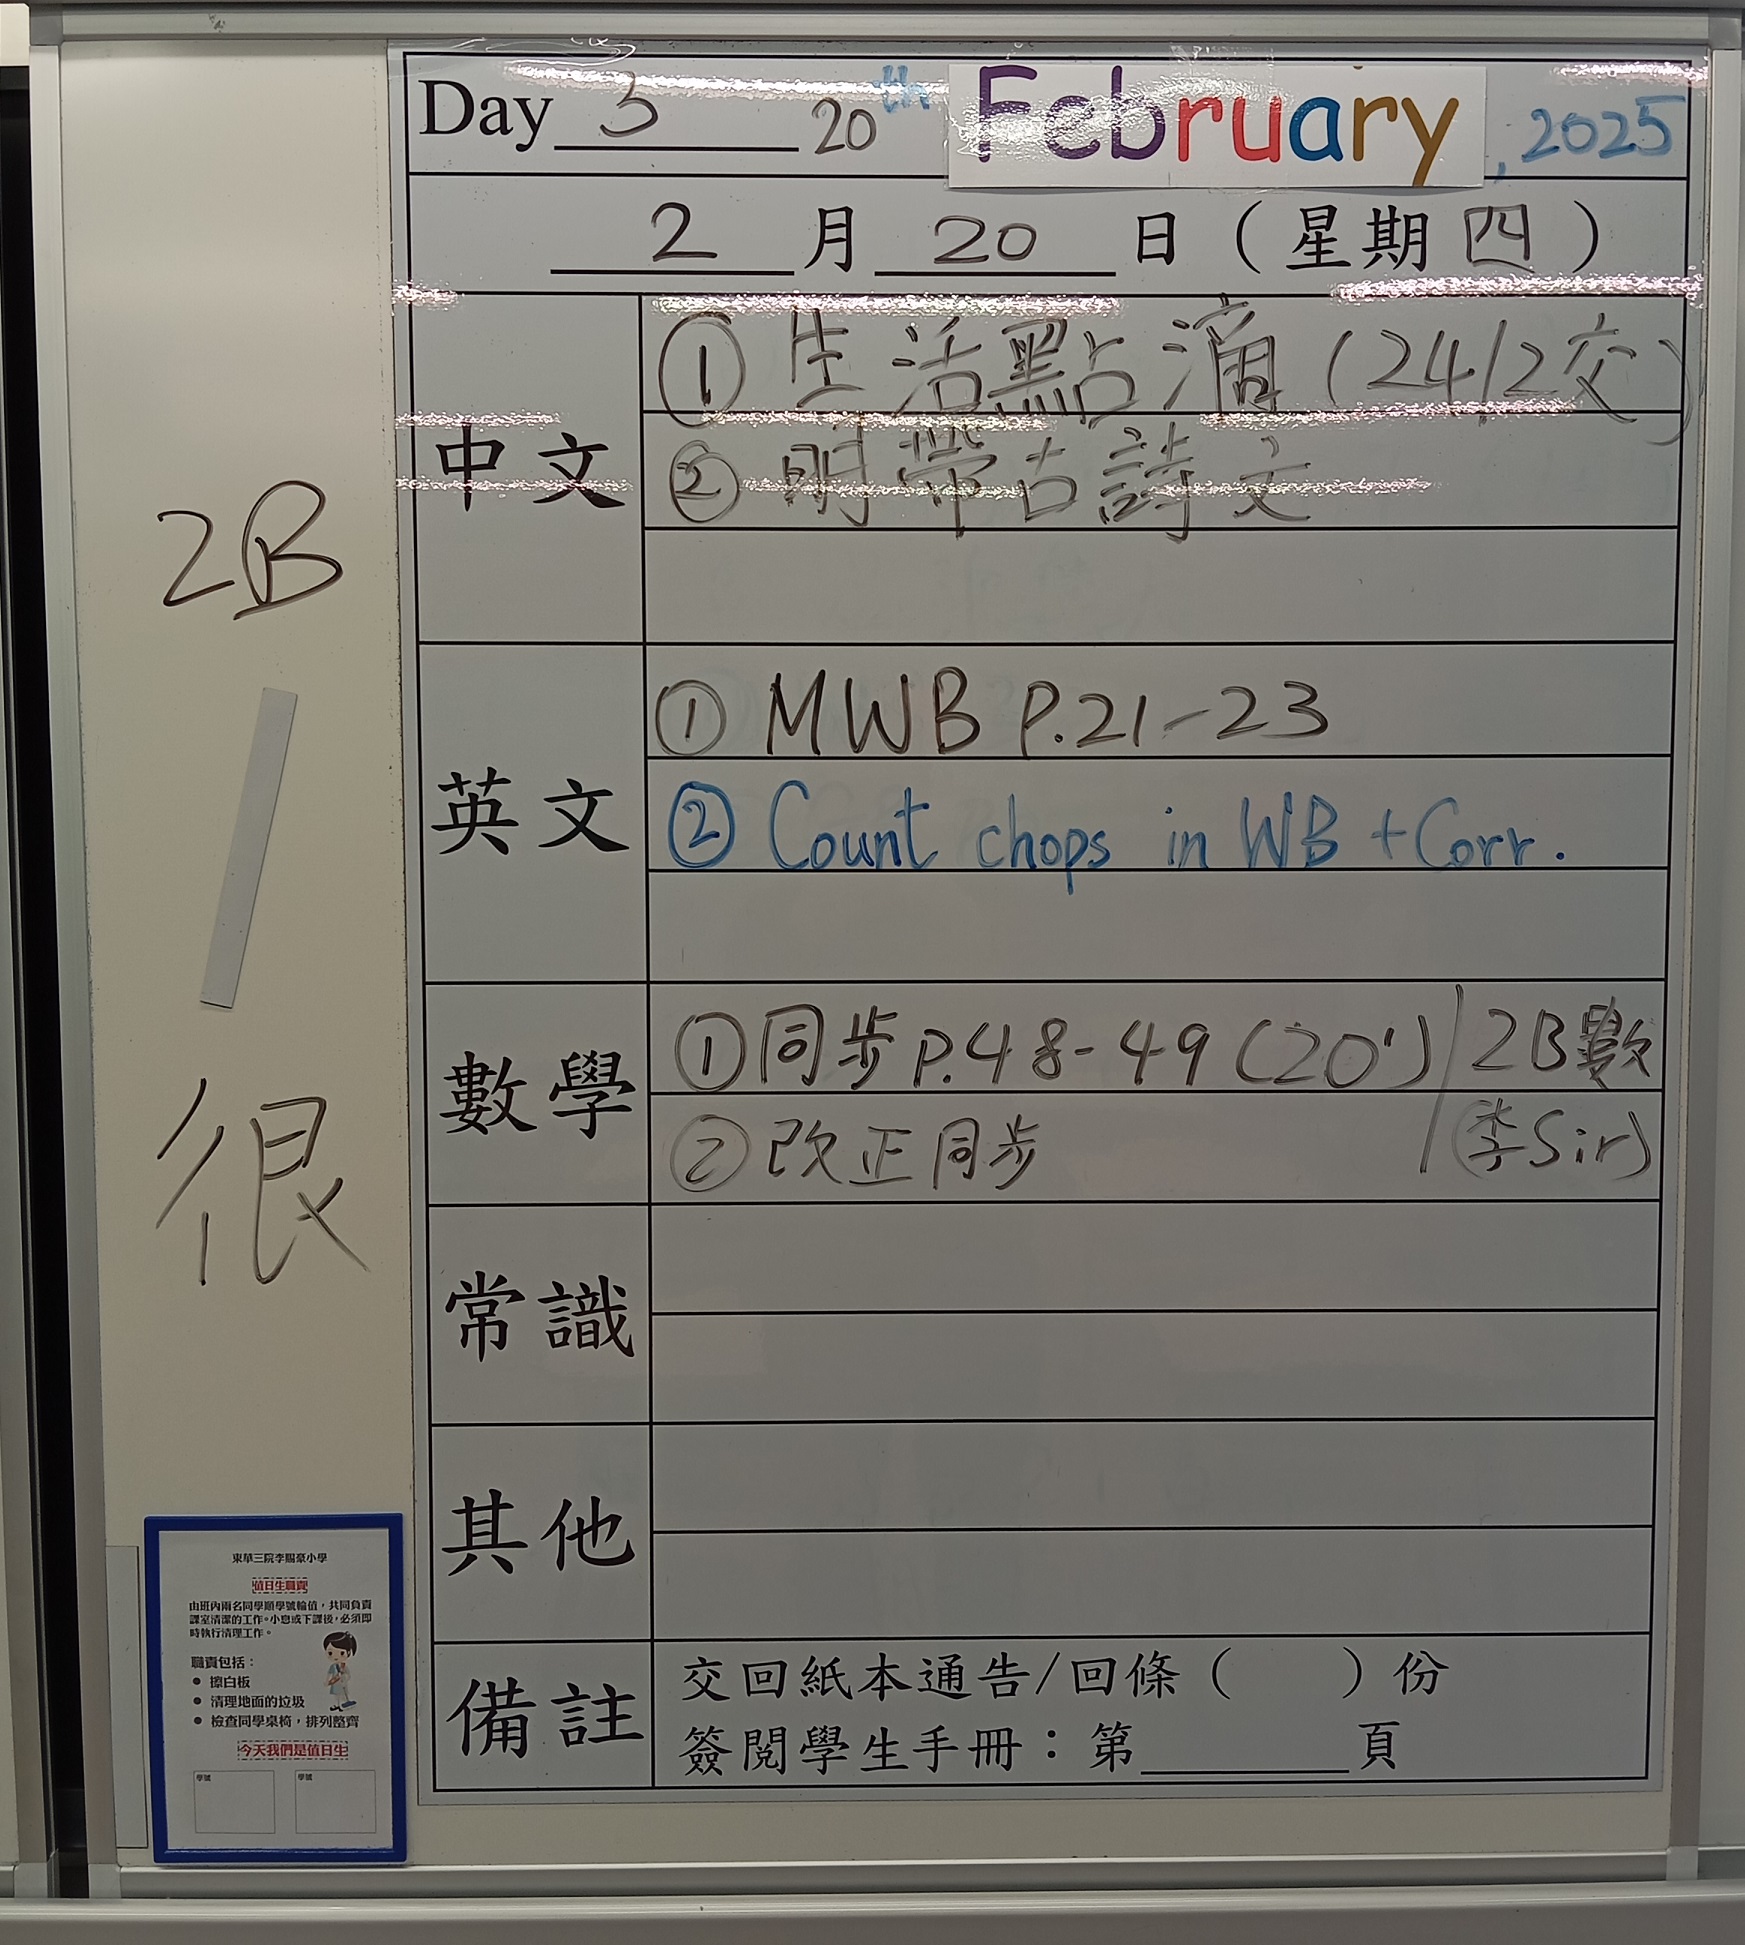 Day 3 20th February, 2025
2 月 20 日 ( 星期 四 )
中文
① 生活點滴 (24/2交)
② 明帶古詩文
英文
① MWB P.21-23
② Count chops in WB + Corr.
數學
① 同步 P.48-49 (20') / 2B數
② 改正同步 (李Sir)
常識
其他
備註
交回紙本通告/回條 ( ) 份
簽閱學生手冊：第______頁
2B
很
東華三院李賜豪小學
值日生職責
由班內兩名同學順學號輪值，共同負責
課室清潔的工作。小息或下課後，必須即
時執行清理工作。
職責包括：
● 擦白板
● 清理地面的垃圾
● 檢查同學桌椅，排列整齊
今天我們是值日生
學號 學號